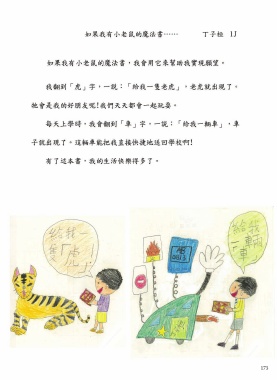 如果我有小老鼠的魔法書…… 丁子桓 1J
如果我有小老鼠的魔法書，我會用它來幫助我實現願望。
我翻到「虎」字，一說：「給我一隻老虎」，老虎就出現了。
牠會是我的好朋友呢！我們天天都會一起玩耍。
每天上學時，我會翻到「車」字，一說：「給我一輛車」，車
子就出現了。這輛車能把我直接快捷地送回學校啊！
有了這本書，我的生活快樂得多了。
給我一隻「虎」
給我一輛「車」
173